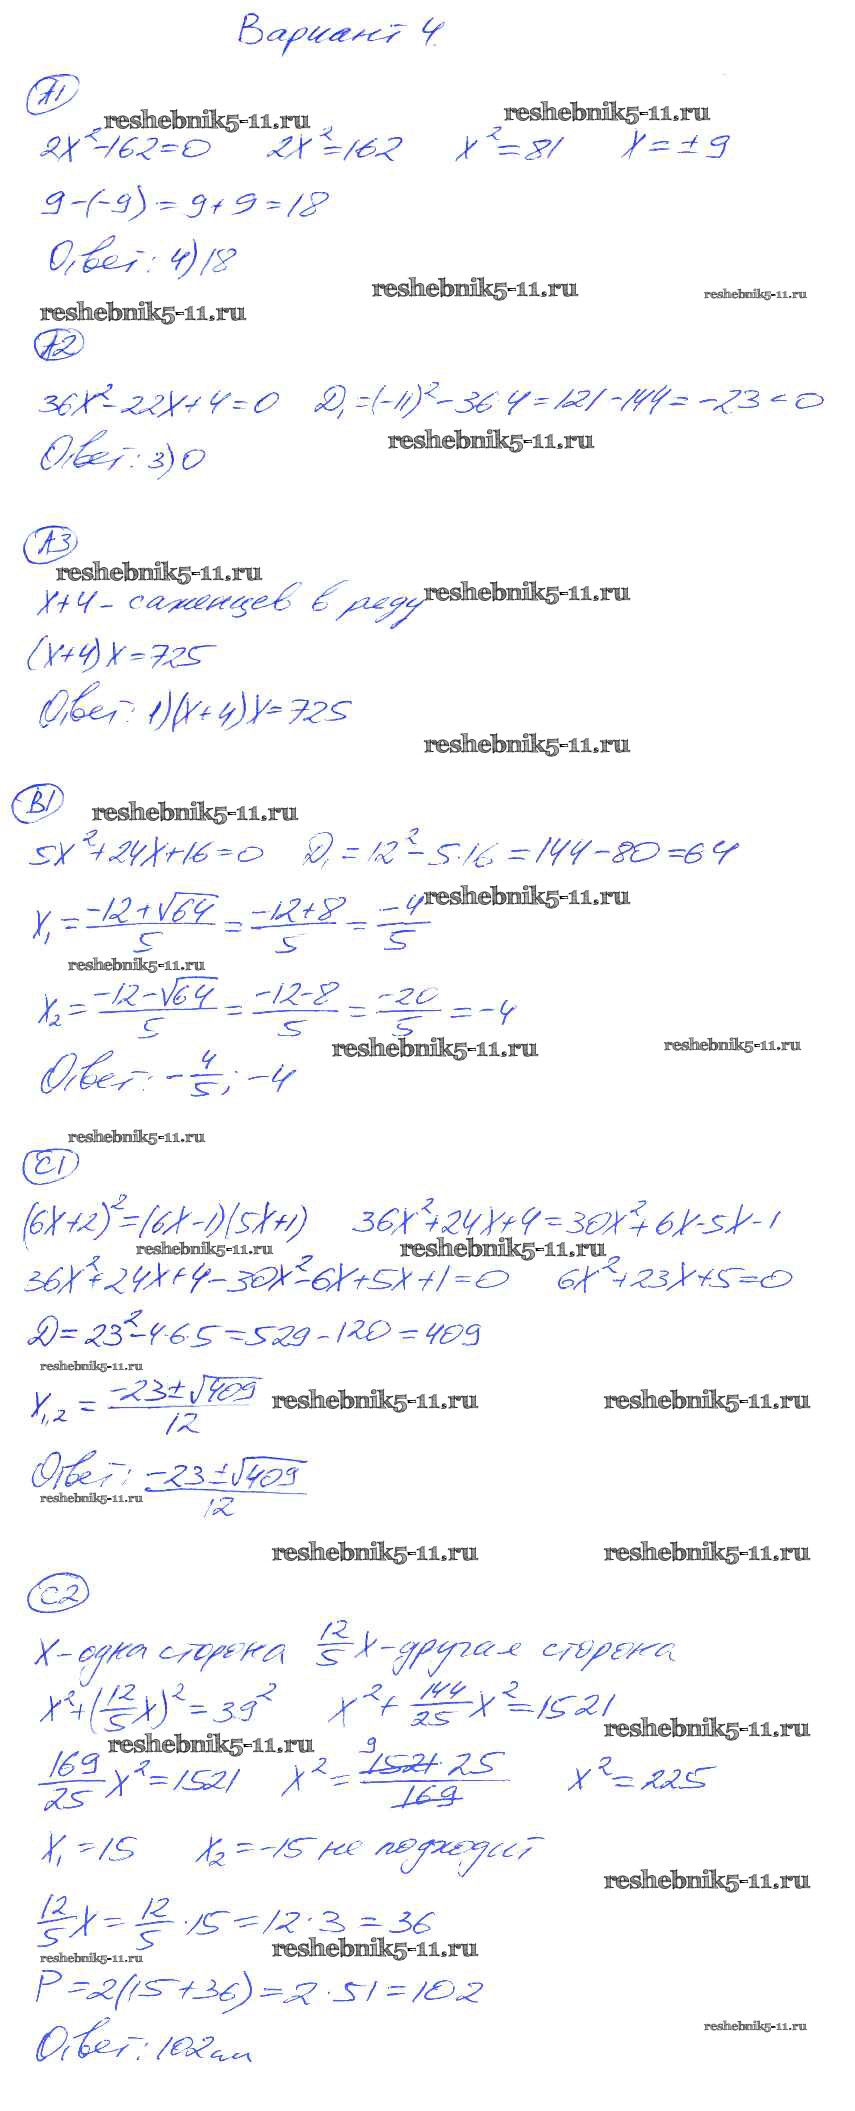 Вариант 4.
А1
reshebnik5-11.ru reshebnik5-11.ru
2x²-162=0 2x²=162 x²=81 x=±9
9-(-9)=9+9=18
Ответ: 4)18
reshebnik5-11.ru reshebnik5-11.ru
reshebnik5-11.ru
А2
36x²-22x+4=0 D₁=(-11)²-36·4=121-144=-23<0
reshebnik5-11.ru
Ответ: 3)0
А3
reshebnik5-11.ru reshebnik5-11.ru
x+4-саженцев в ряду
(x+4)x=725
Ответ: 1)(x+4)x=725
reshebnik5-11.ru
В1 reshebnik5-11.ru
5x²+24x+16=0 D₁=12²-5·16=144-80=64
reshebnik5-11.ru
x₁=(-12+√64)/5=(-12+8)/5=-4/5
reshebnik5-11.ru
x₂=(-12-√64)/5=(-12-8)/5=-20/5=-4
reshebnik5-11.ru reshebnik5-11.ru
Ответ: -4/5; -4
reshebnik5-11.ru
С1
(6x+2)²=(6x-1)(5x+1) 36x²+24x+4=30x²+6x-5x-1
reshebnik5-11.ru reshebnik5-11.ru
36x²+24x+4-30x²-6x+5x+1=0 6x²+23x+5=0
D=23²-4·6·5=529-120=409
reshebnik5-11.ru
x₁,₂=(-23±√409)/12 reshebnik5-11.ru reshebnik5-11.ru
Ответ: (-23±√409)/12
reshebnik5-11.ru
reshebnik5-11.ru reshebnik5-11.ru
С2
x-одна сторона 12/5x-другая сторона
x²+(12/5x)²=39² x²+144/25x²=1521
reshebnik5-11.ru reshebnik5-11.ru
9
169/25x²=1521 x²=1521·25/169 x²=225
x₁=15 x₂=-15 не подходит
reshebnik5-11.ru
12/5x=12/5·15=12·3=36
reshebnik5-11.ru reshebnik5-11.ru
P=2(15+36)=2·51=102
reshebnik5-11.ru
Ответ: 102мм